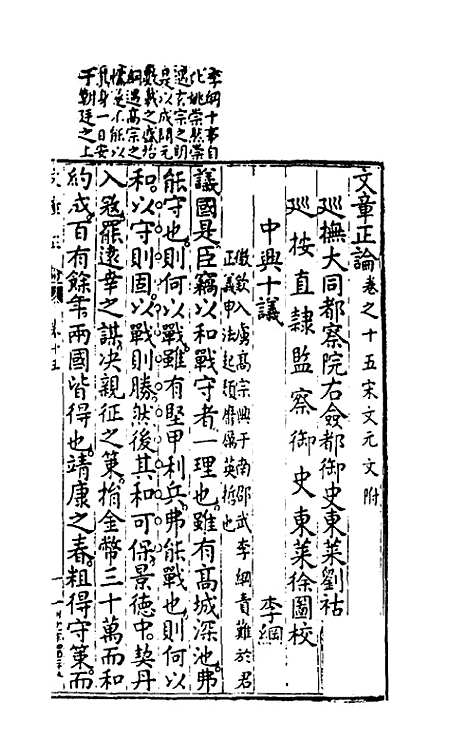 李綱十事自
化姚崇然崇
遇玄宗之明
是以成開元
數載之盛治
綱遇高宗之
懦是不能以
其身一日安
于朝廷之上
文章正論卷之十五宋文元文附
巡撫大同都察院右僉都御史東萊劉祜
巡按直隸監察御史東萊徐圖校
中興十議 李綱
徽欽入虜高宗興于南邵武李綱責難於君
正議申法起頹磨厲英哲也
議國是臣竊以和戰守者一理也雖有高城深池弗
能守也則何以戰雖有堅甲利兵弗能戰也則何以
和以守則固以戰則勝然後其和可保景德中契丹
入寇罷遠幸之謀决親征之策捐金幣三十萬而和
約成百有餘年兩國皆得也靖康之春粗得守策而